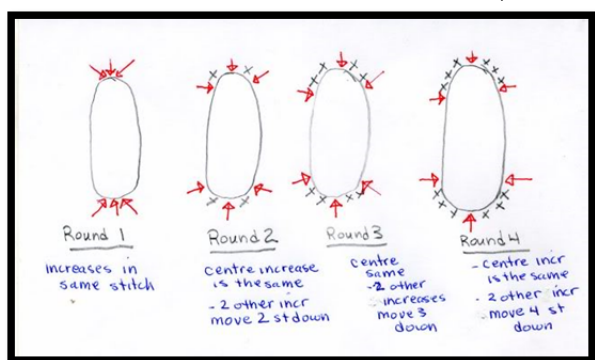 Round 1
increases in
same stitch
Round 2
centre increase
is the same
- 2 other incr
move 2 st down
Round 3
centre
same
- 2 other
increases
move 3
down
Round 4
- centre incr
is the same
- 2 other incr
- move 4 st
down